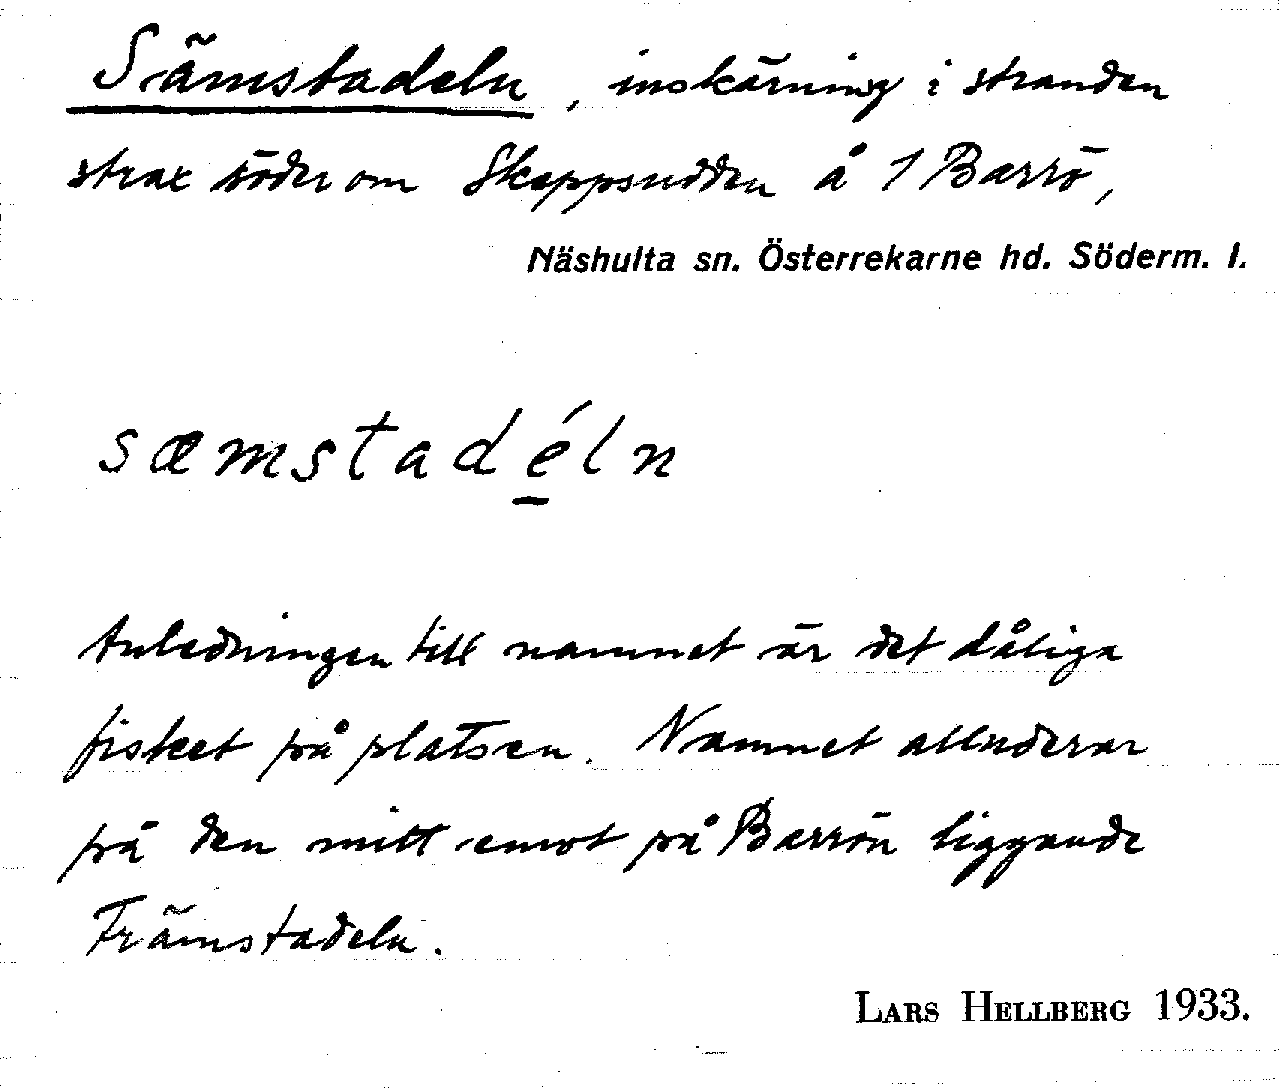 Sämstadeln, inskärning i stranden
strax söder om Skeppsudden å 1 Barrö,
Näshulta sn. Österrekarne hd. Söderm. l.
sæmstadéln
Anledningen till namnet är det dåliga
fisket på platsen. Namnet alluderar
på den mitt emot på Barrön liggande
Främstadeln.
LARS HELLBERG 1933.